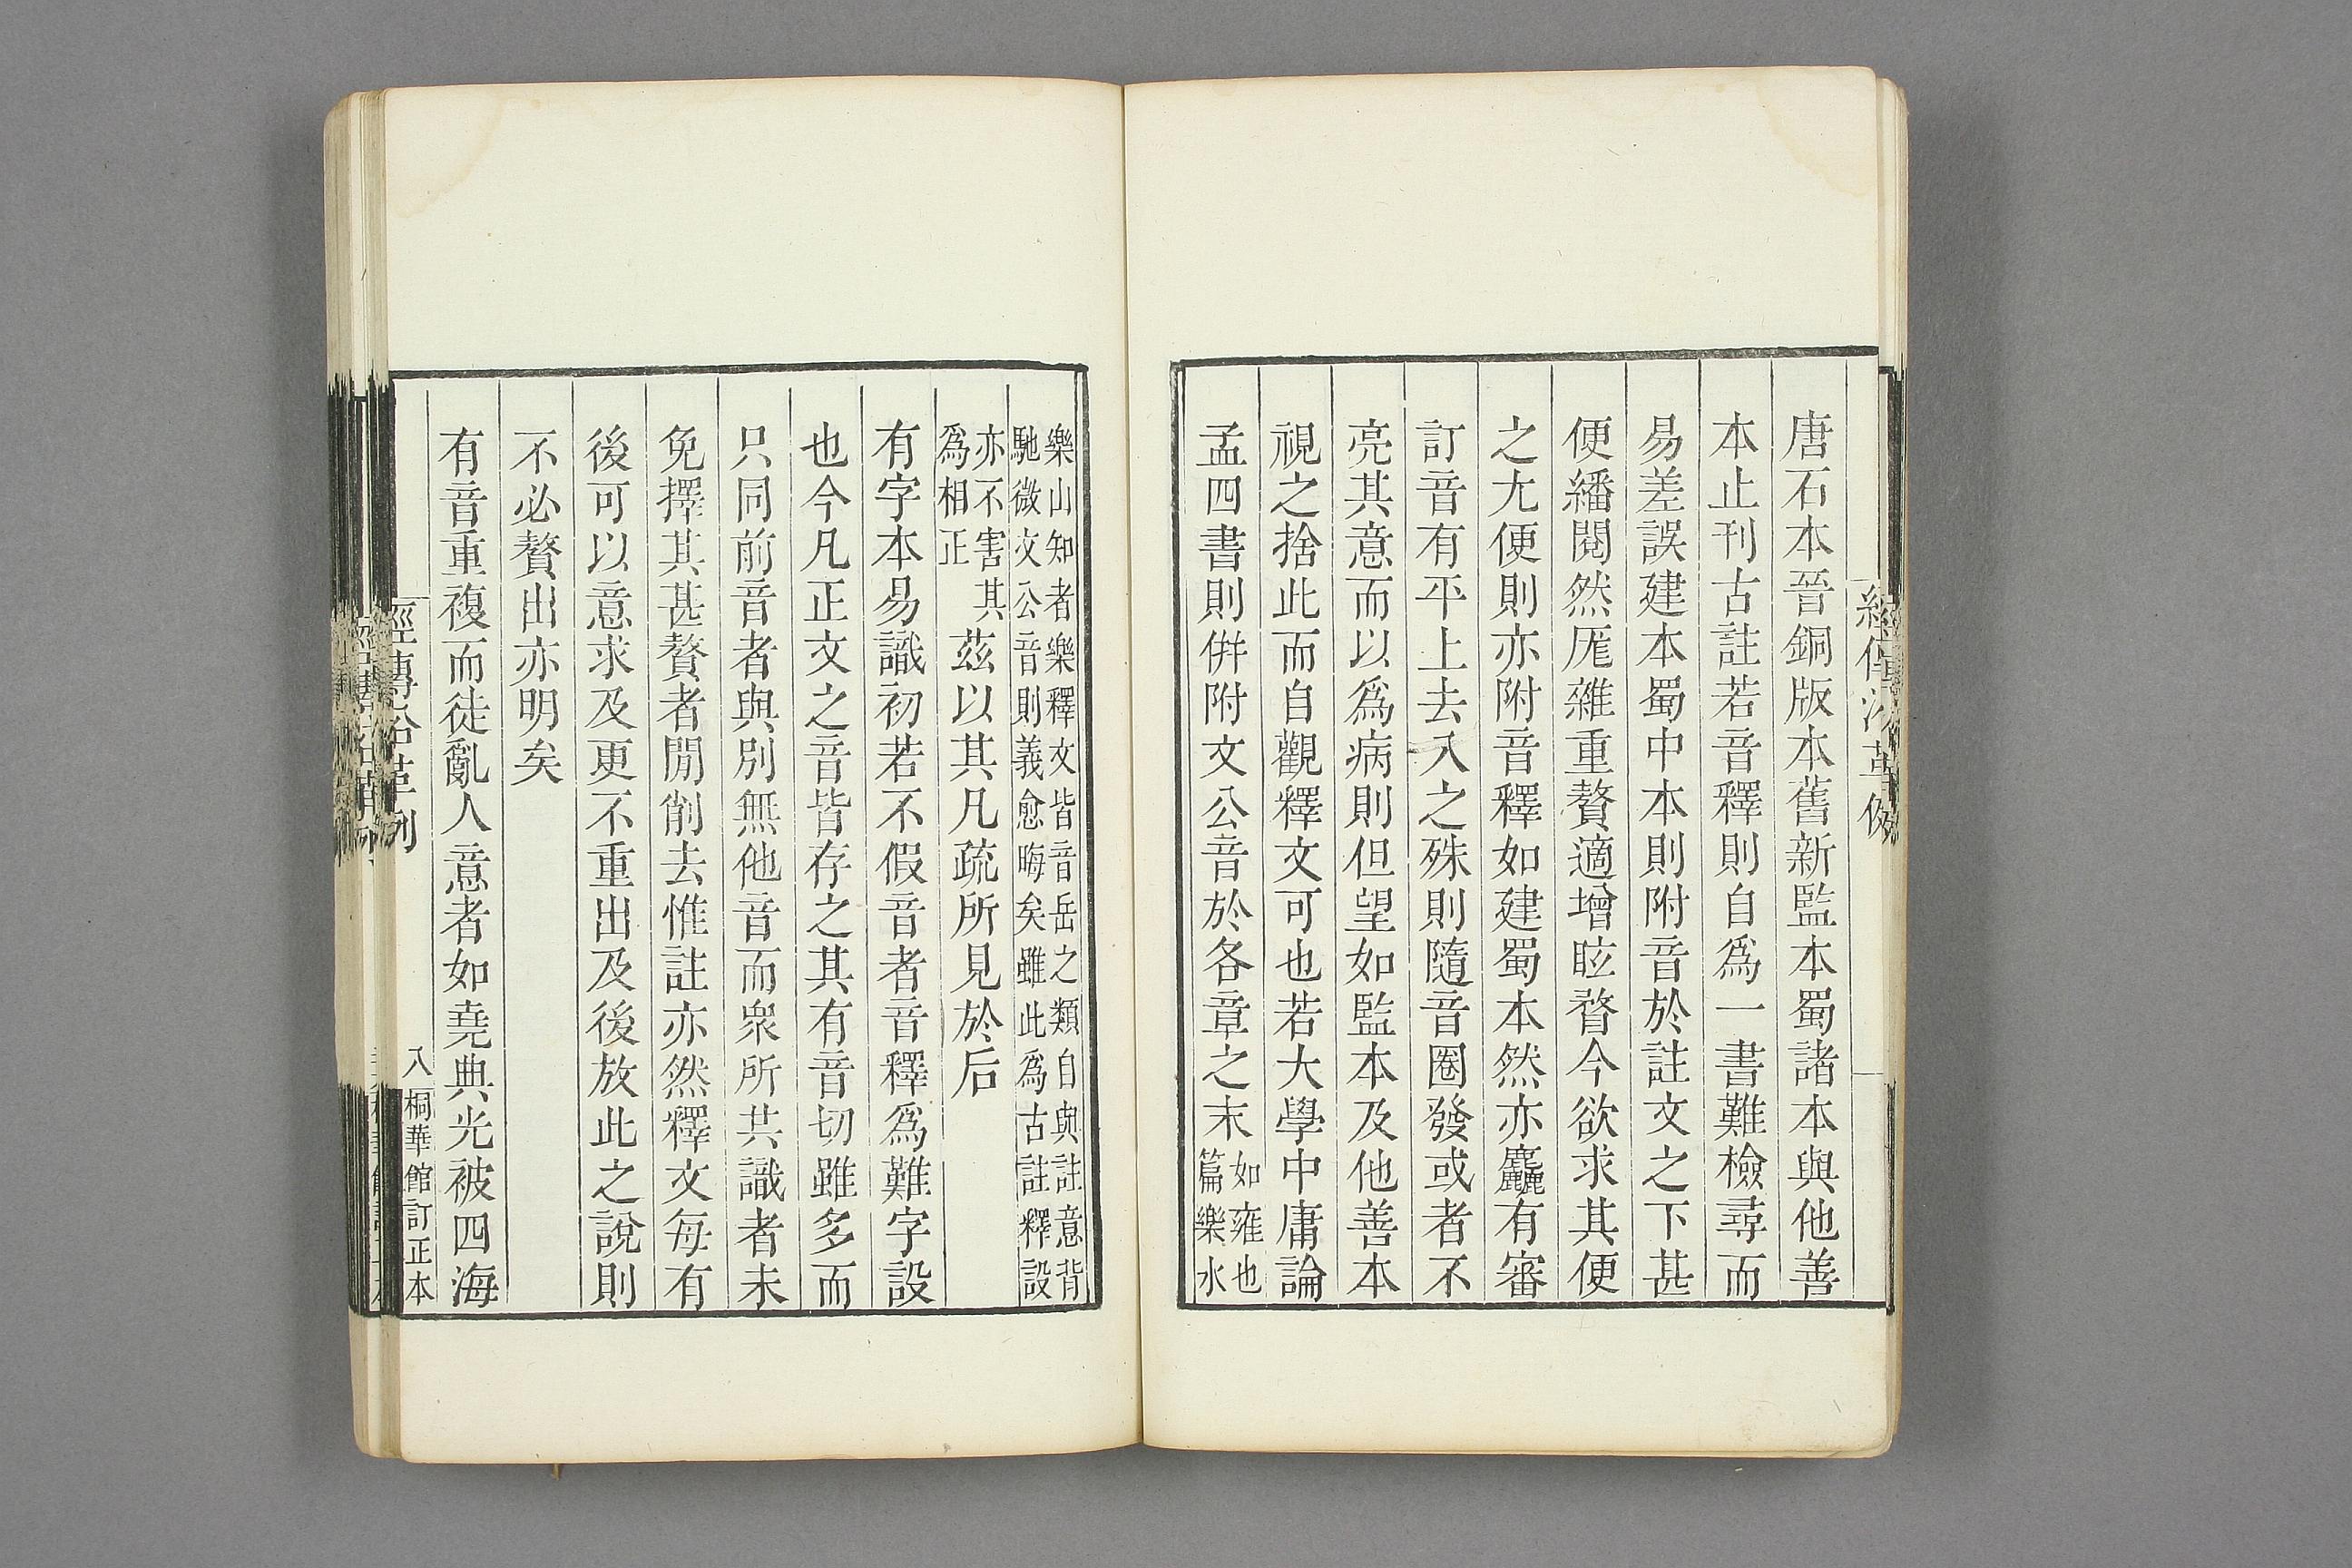 唐石本晉銅版本舊新監本蜀諸本與他善
本止刊古註若音釋則自爲一書難檢尋而
易差誤建本蜀中本則附音於註文之下甚
便繙閱然厖雜重贅適增眩瞀今欲求其便
之尢便則亦附音釋如建蜀本然亦麤有審
訂音有平上去入之殊則隨音圈發或者不
亮其意而以爲病則但望如監本及他善本
視之捨此而自觀釋文可也若大學中庸論
孟四書則併附文公音於各章之末如雍也
篇樂水
樂山知者樂釋文皆音岳之類自與註意背
馳微文公音則義愈晦矣雖此爲古註釋設
亦不害其
爲相正
茲以其凡疏所見於后
有字本易識初若不假音者音釋爲難字設
也今凡正文之音皆存之其有音切雖多而
只同前音者與別無他音而衆所共識者未
免擇其甚贅者閒削去惟註亦然釋文每有
後可以意求及更不重出及後放此之說則
不必贅出亦明矣
有音重複而徒亂人意者如堯典光被四海
經傳沿革例
八
桐華館訂正本